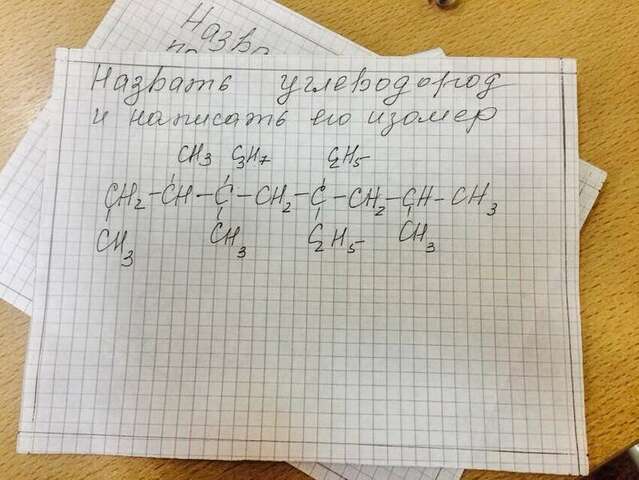 Назва
Назвать углеводород
и написать его изомер
CH3 C3H7 C2H5
CH2-CH-C-CH2-C-CH2-CH-CH3
CH3 CH3 C2H5 CH3